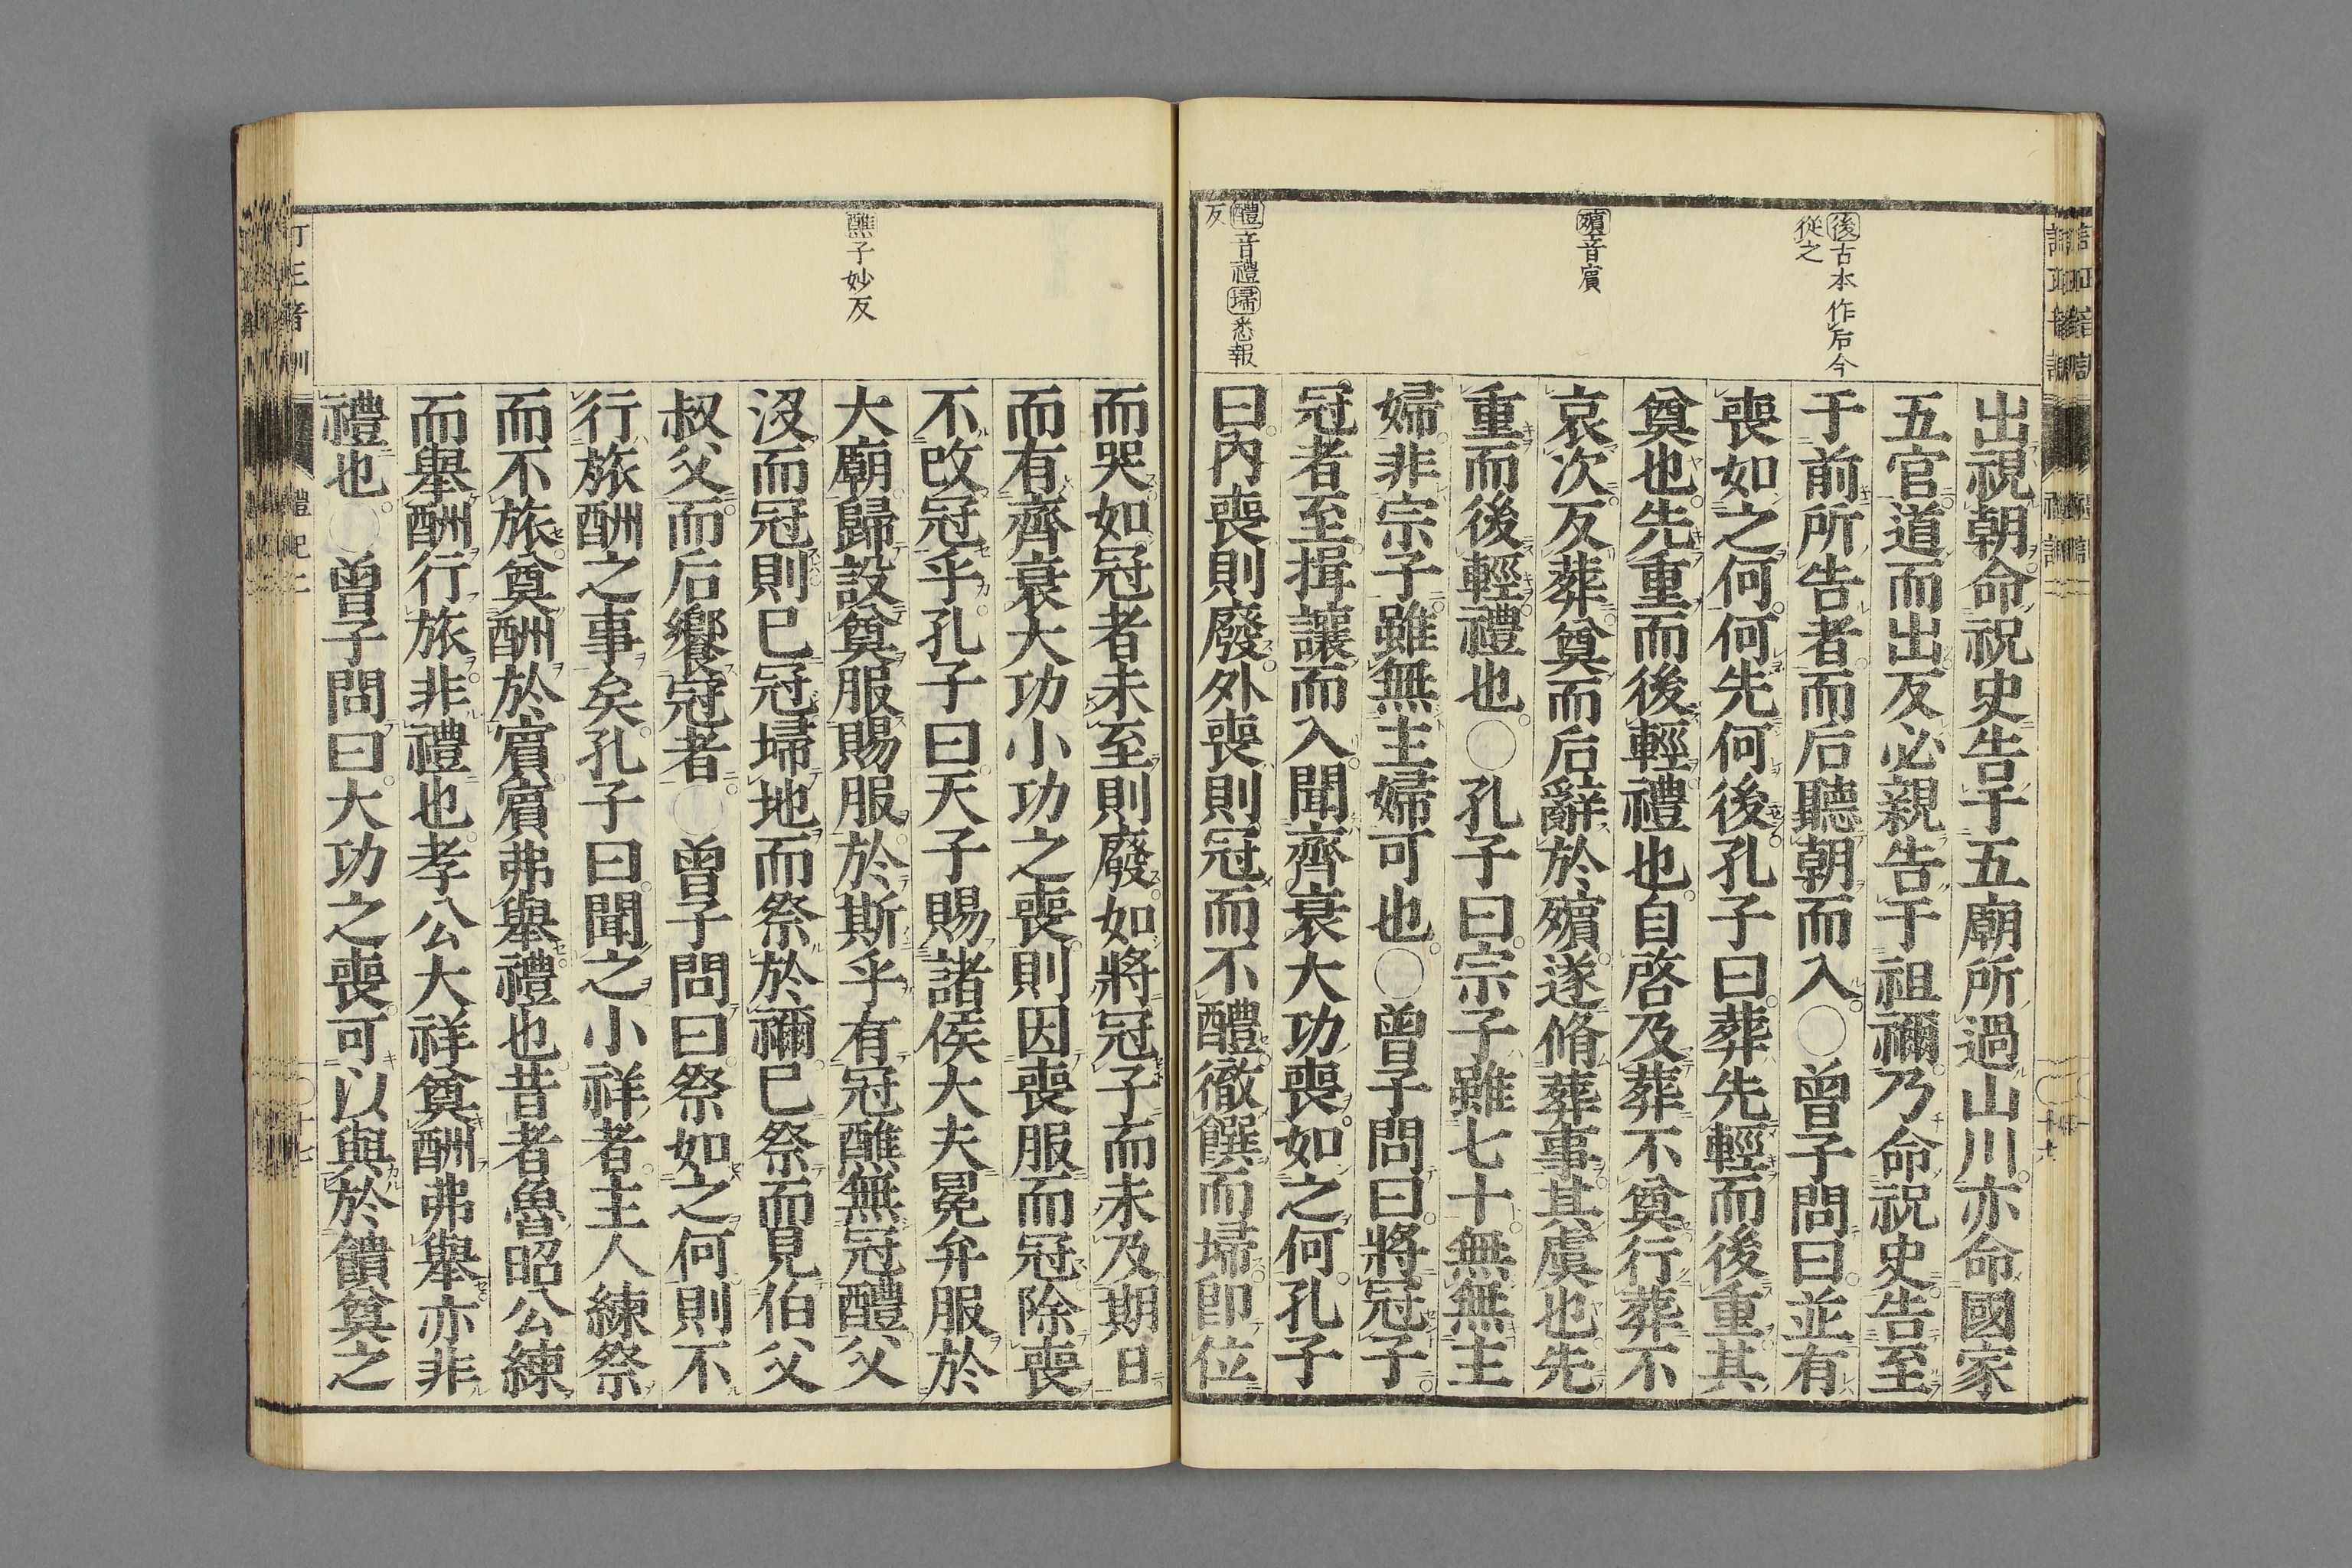 後古本作后今
從之
殯音賓
醴音禮埽悉報
反
出視朝命祝史告于五廟所過山川亦命國家
五官道而出反必親告于祖禰乃命祝史告至
于前所告者而后聽朝而入○曾子問曰並有
喪如之何何先何後孔子曰葬先輕而後重其
奠也先重而後輕禮也自啓及葬不奠行葬不
哀次反葬奠而后辭於殯遂脩葬事其虞也先
重而後輕禮也○孔子曰宗子雖七十無無主
婦非宗子雖無主婦可也○曾子問曰將冠子
冠者至揖讓而入聞齊衰大功喪如之何孔子
曰內喪則廢外喪則冠而不醴徹饌而埽卽位
醮子妙反
而哭如冠者未至則廢如將冠子而未及期日
而有齊衰大功小功之喪則因喪服而冠除喪
不改冠乎孔子曰天子賜諸侯大夫冕弁服於
大廟歸設奠服賜服於斯乎有冠醮無冠醴父
沒而冠則已冠埽地而祭於禰已祭而見伯父
叔父而后饗冠者○曾子問曰祭如之何則不
行旅酬之事矣孔子曰聞之小祥者主人練祭
而不旅奠酬於賓賓弗舉禮也昔者魯昭公練
而舉酬行旅非禮也孝公大祥奠酬弗舉亦非
禮也○曾子問曰大功之喪可以與於饋奠之
禮記二
十七